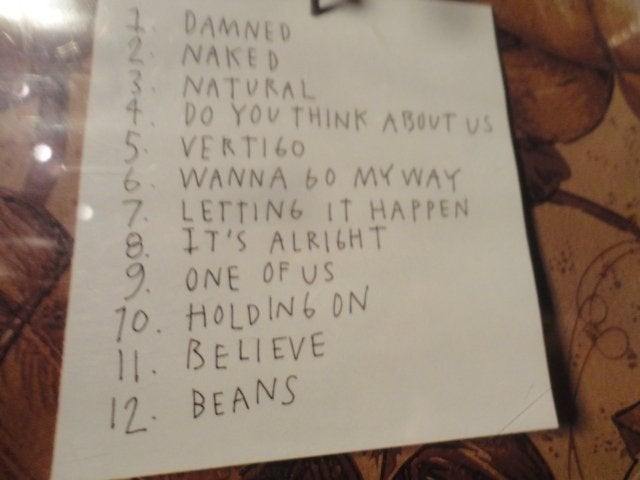 1. DAMNED
2. NAKED
3. NATURAL
4. DO YOU THINK ABOUT US
5. VERTIGO
6. WANNA GO MY WAY
7. LETTING IT HAPPEN
8. IT'S ALRIGHT
9. ONE OF US
10. HOLDING ON
11. BELIEVE
12. BEANS